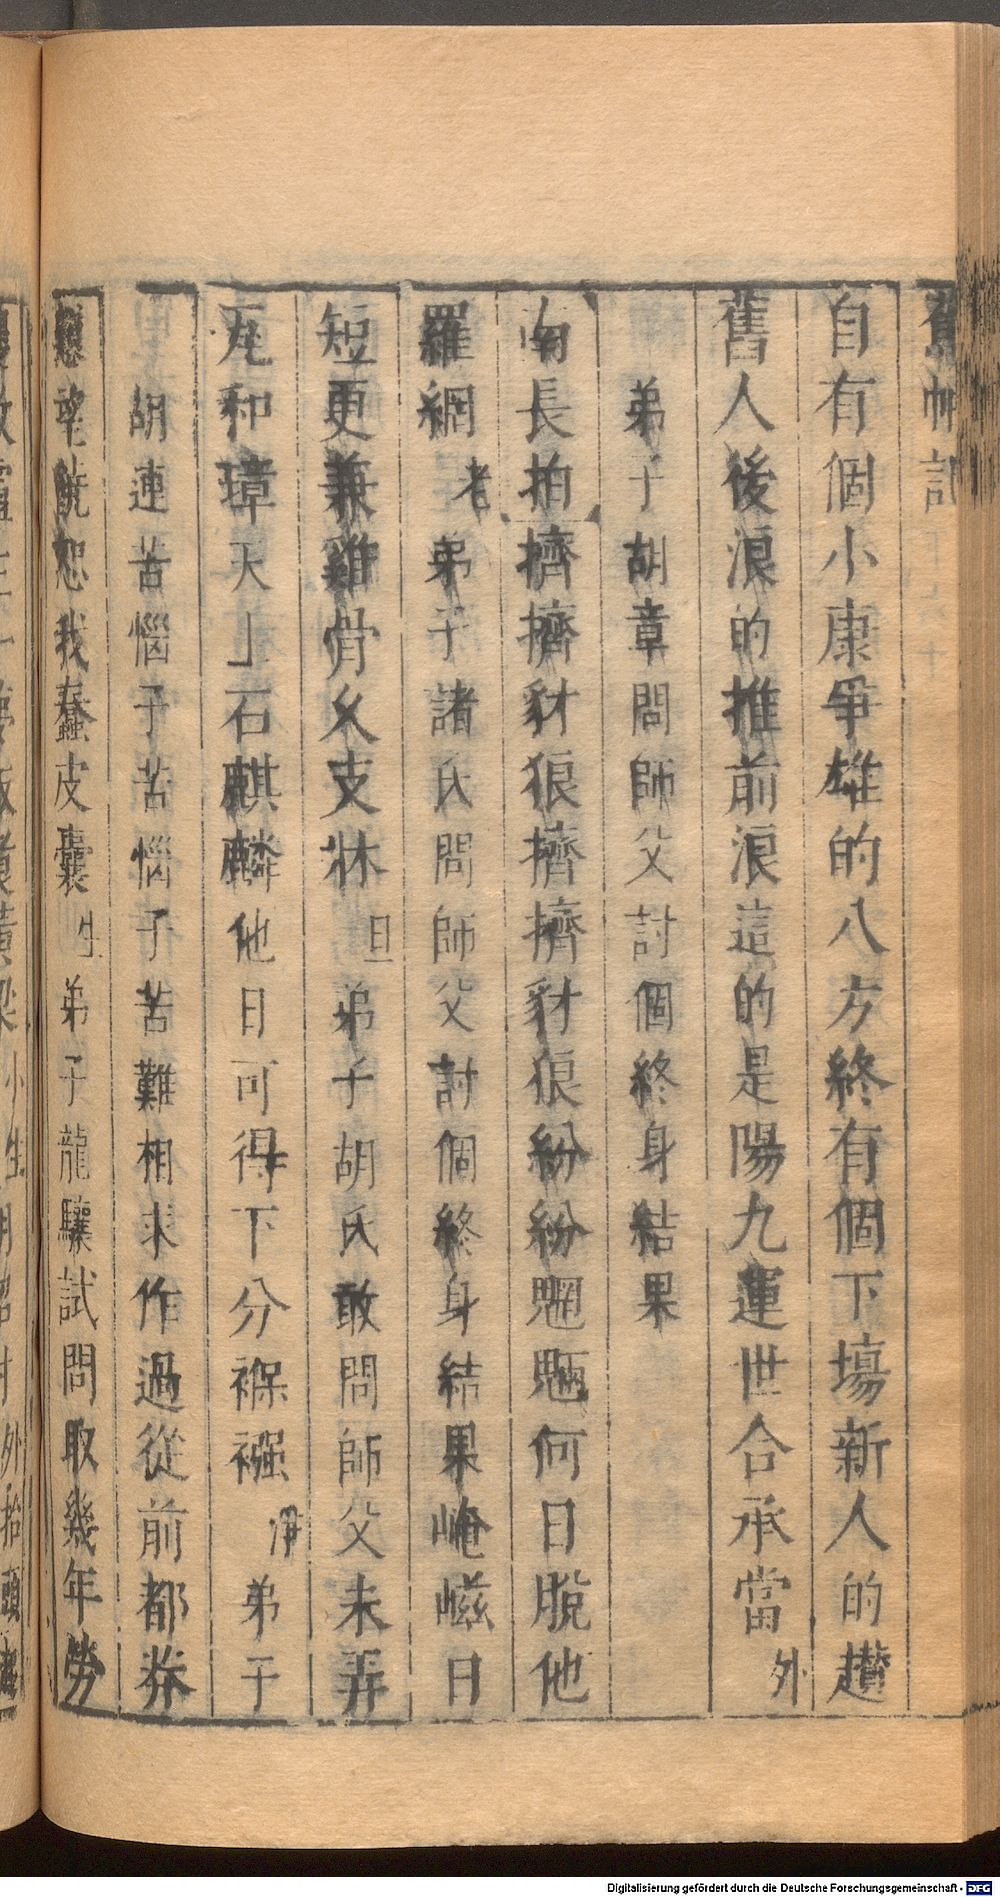 自有個小康爭雄的八方終有個下塲新人的趲
舊人後浪的推前浪這的是陽九運世合承當外
弟子胡章問師父討個終身結果
南長拍擠擠豺狼擠擠豺狼紛紛魍魎何日脫他
羅網老弟子諸氏問師父討個終身結果崦嵫日
短更兼雞骨久支牀旦弟子胡氏敢問師父未弄
瓦和璋天上石麒麟他日可得下分褓襁净弟子
胡連苦惱子苦惱子苦難相求作過從前都券
懇望饒恕我蠢皮囊生弟子龍驤試問取幾年勞
Digitalisierung gefördert durch die Deutsche Forschungsgemeinschaft - DFG